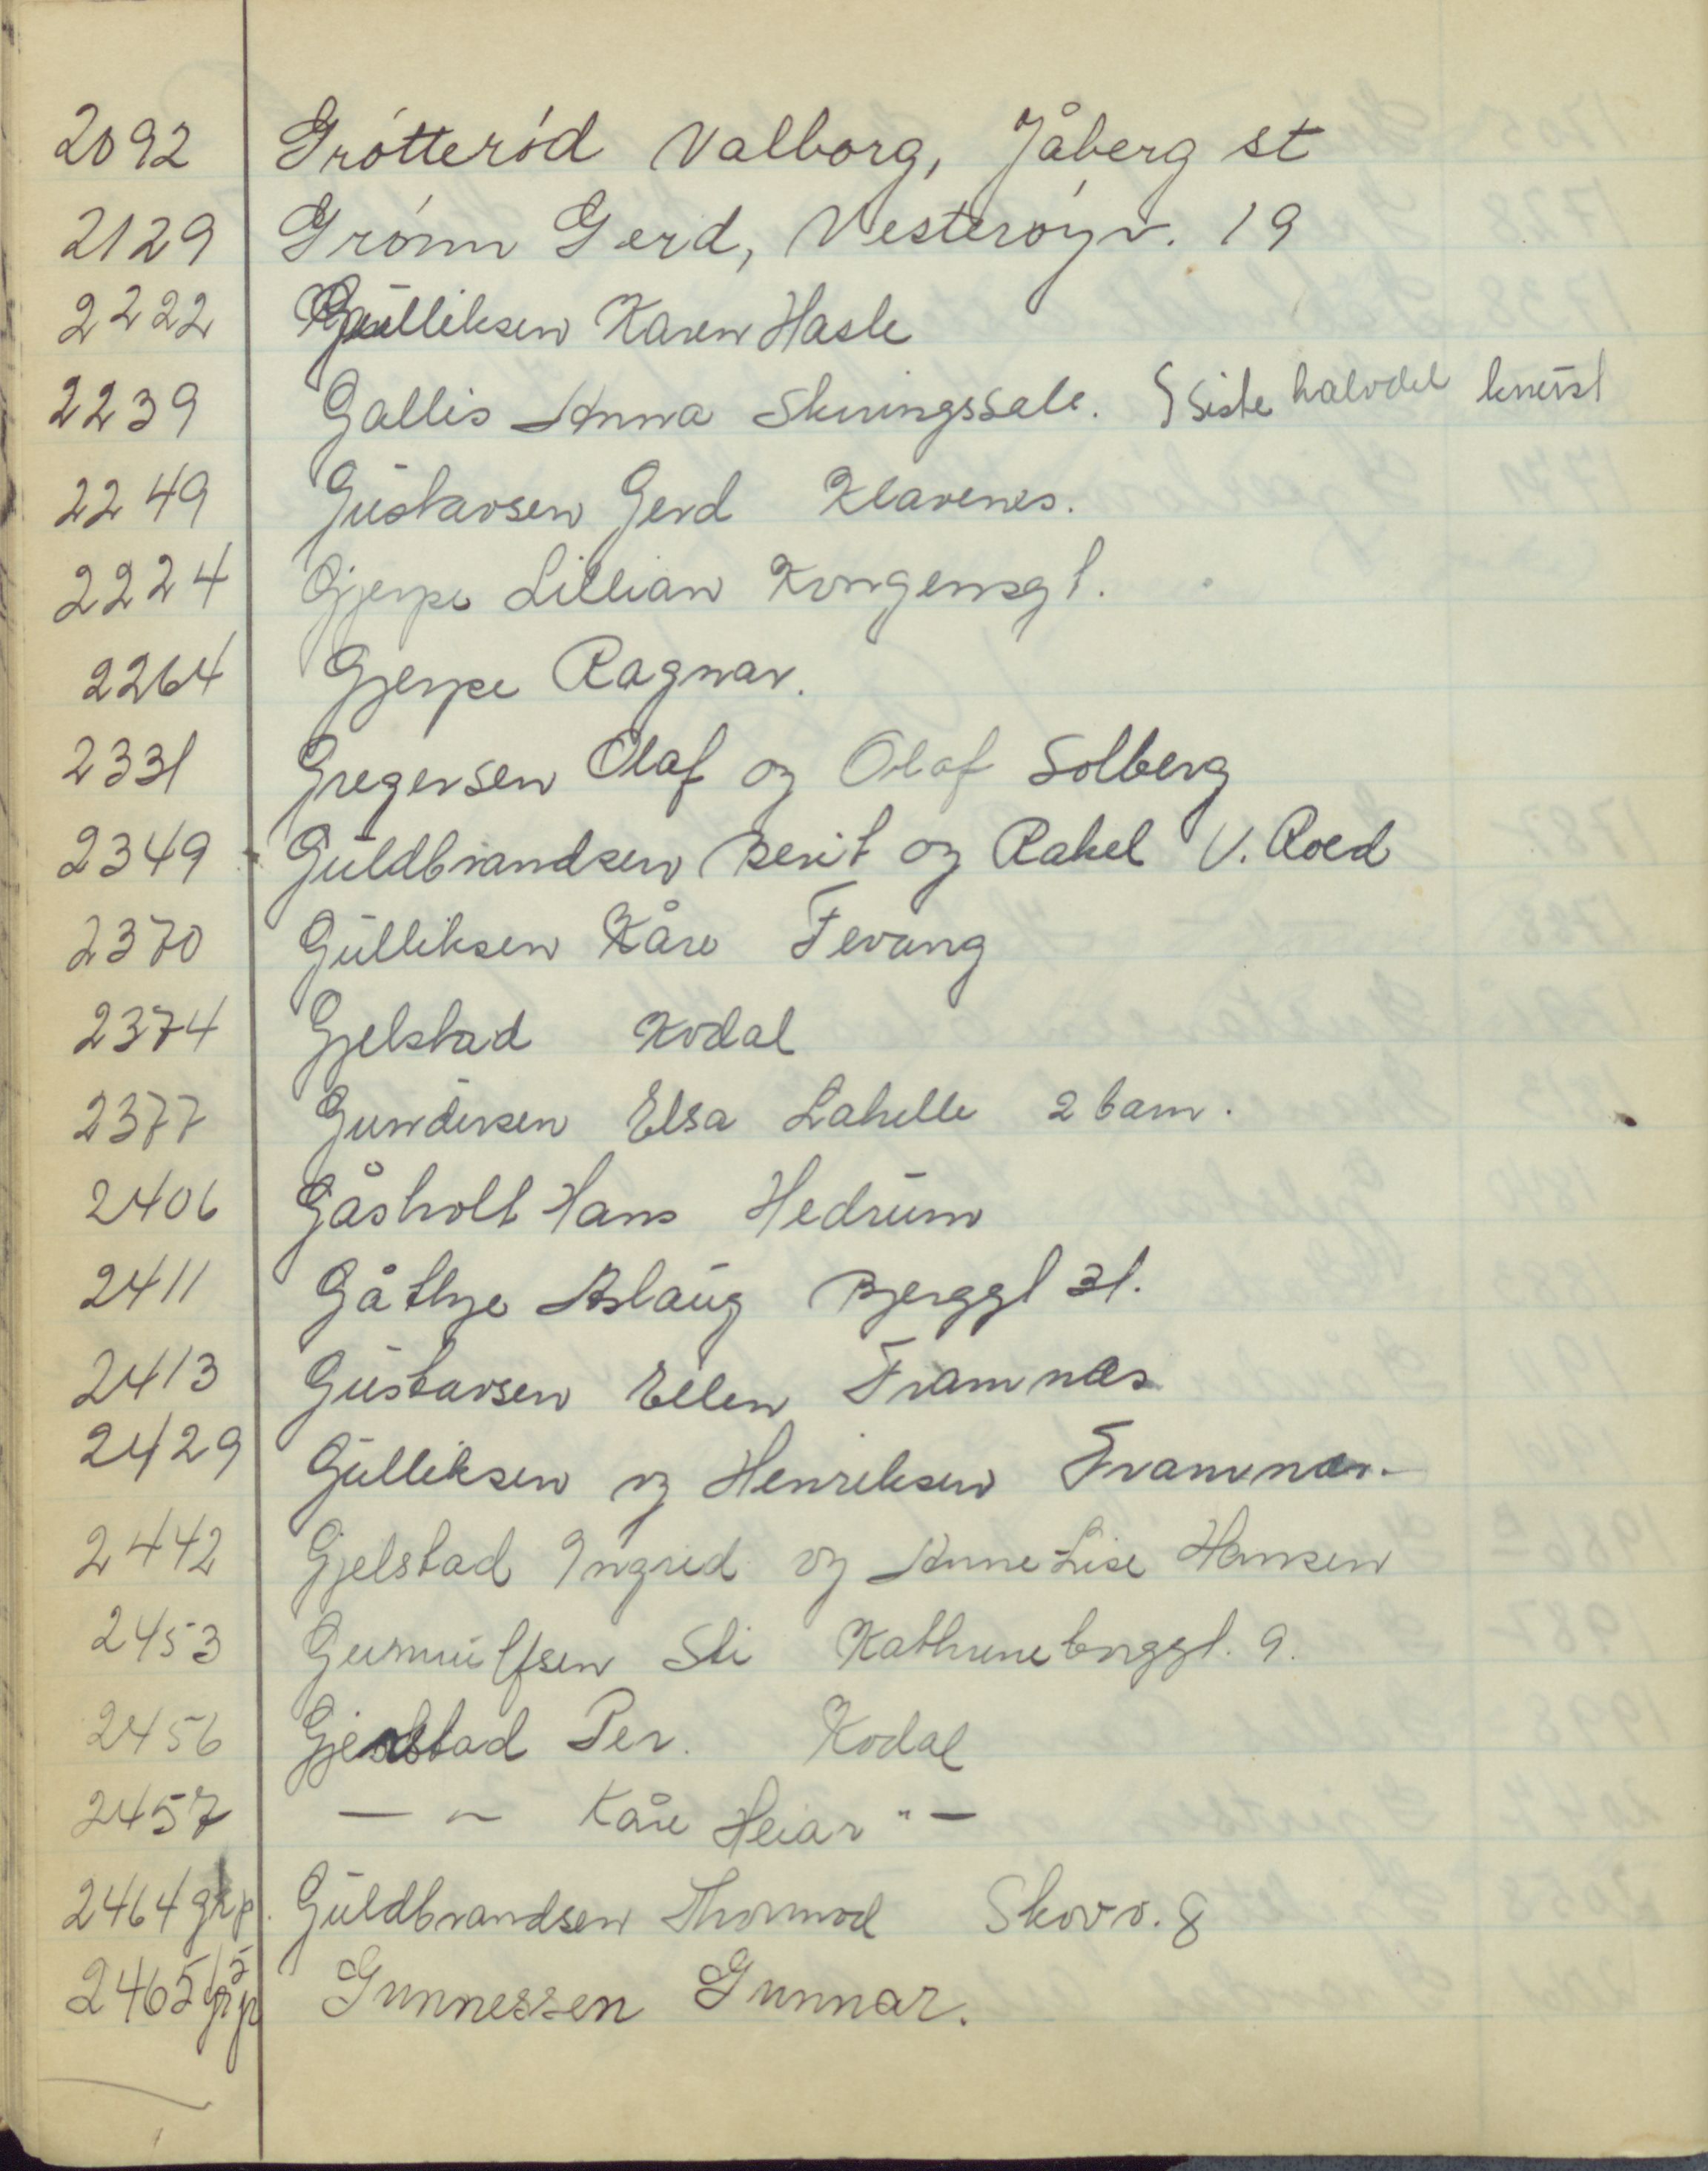 2092 Grótteród Valborg, Jåberg st
2129 Grónn Gerd, Vesteróyv. 19
2222 Gulliksen Karen Hasle
2239 Gallis Anna Skiringssale. siste halvdel knust
2249 Gustavsen Gerd Klavenes.
2224 Gjerpe Lillian Kongensgt.
2264 Gjerpe Ragnar.
2331 Gregersen Olaf og Olaf Solberg
2349 Guldbrandsen Berit og Rakel V. Roed
2370 Gulliksen Kåre Fevang
2374 Gjelstad Kodal
2377 Gundersen Elsa Lahelle 2 barn.
2406 Gåsholt Hans Hedrum
2411 Gåthye Aslaug Bjerggt 31.
2413 Gustavsen Ellen Framnæs
2429 Gulliksen og Henriksen Framnæs
2442 Gjelstad Ingrid og Anne-Lise Hansen
2453 Gunnulfsen Kathrineborggt. 9.
2456 Gjelstad Per. Kodal
2457 — ~ Kåre Heiar " —
2464 grp. Guldbrandsen Thormod Skovv. 8
2465 grp Gunnessen Gunnar.